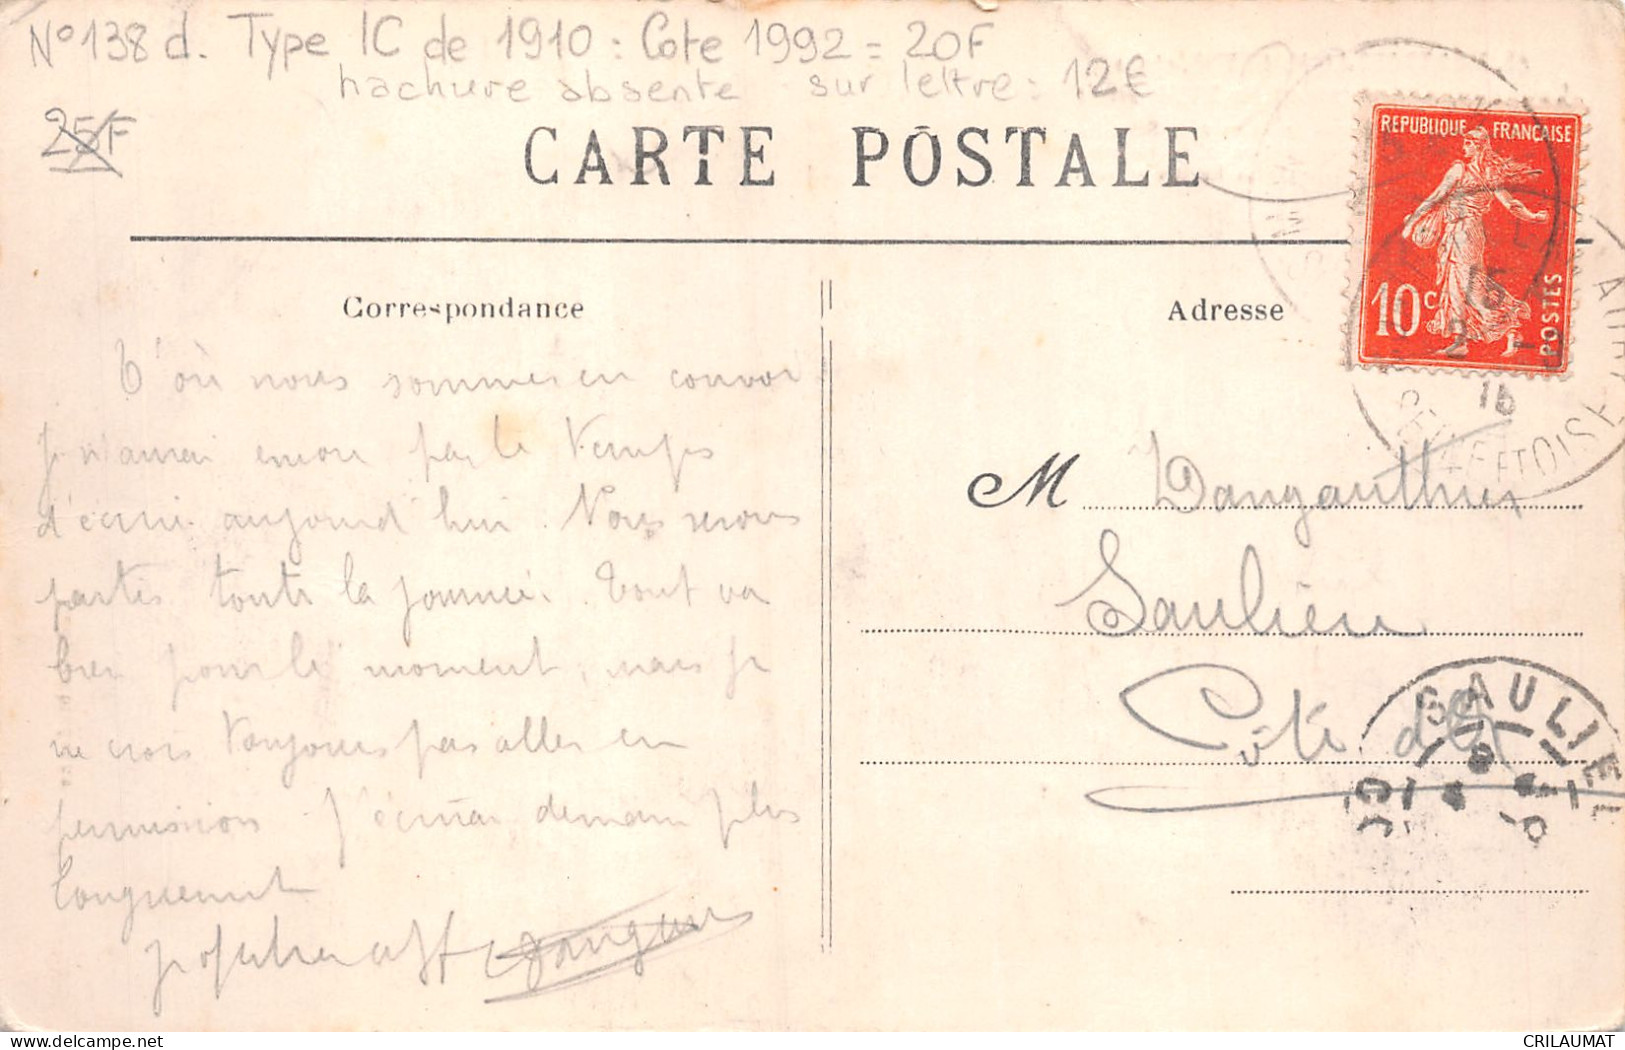 N° 138 d. Type IC de 1910 : Cote 1992 = 20F
hachure absente sur lettre : 12€
25F
CARTE POSTALE
REPUBLIQUE FRANÇAISE
10c
POSTES
Correspondance
Adresse
où nous sommes en convoi
encore pas le temps
d'écrire aujourd'hui. Nous serons
partis toute la journée. Tout va
bien pour le moment, mais je
ne crois toujours pas aller en
permission. J'écrirai demain plus
longuement
M Dangauthier
Saulieu
Côte d'Or
SAULIEU
CRILAUMAT
delcampe.net